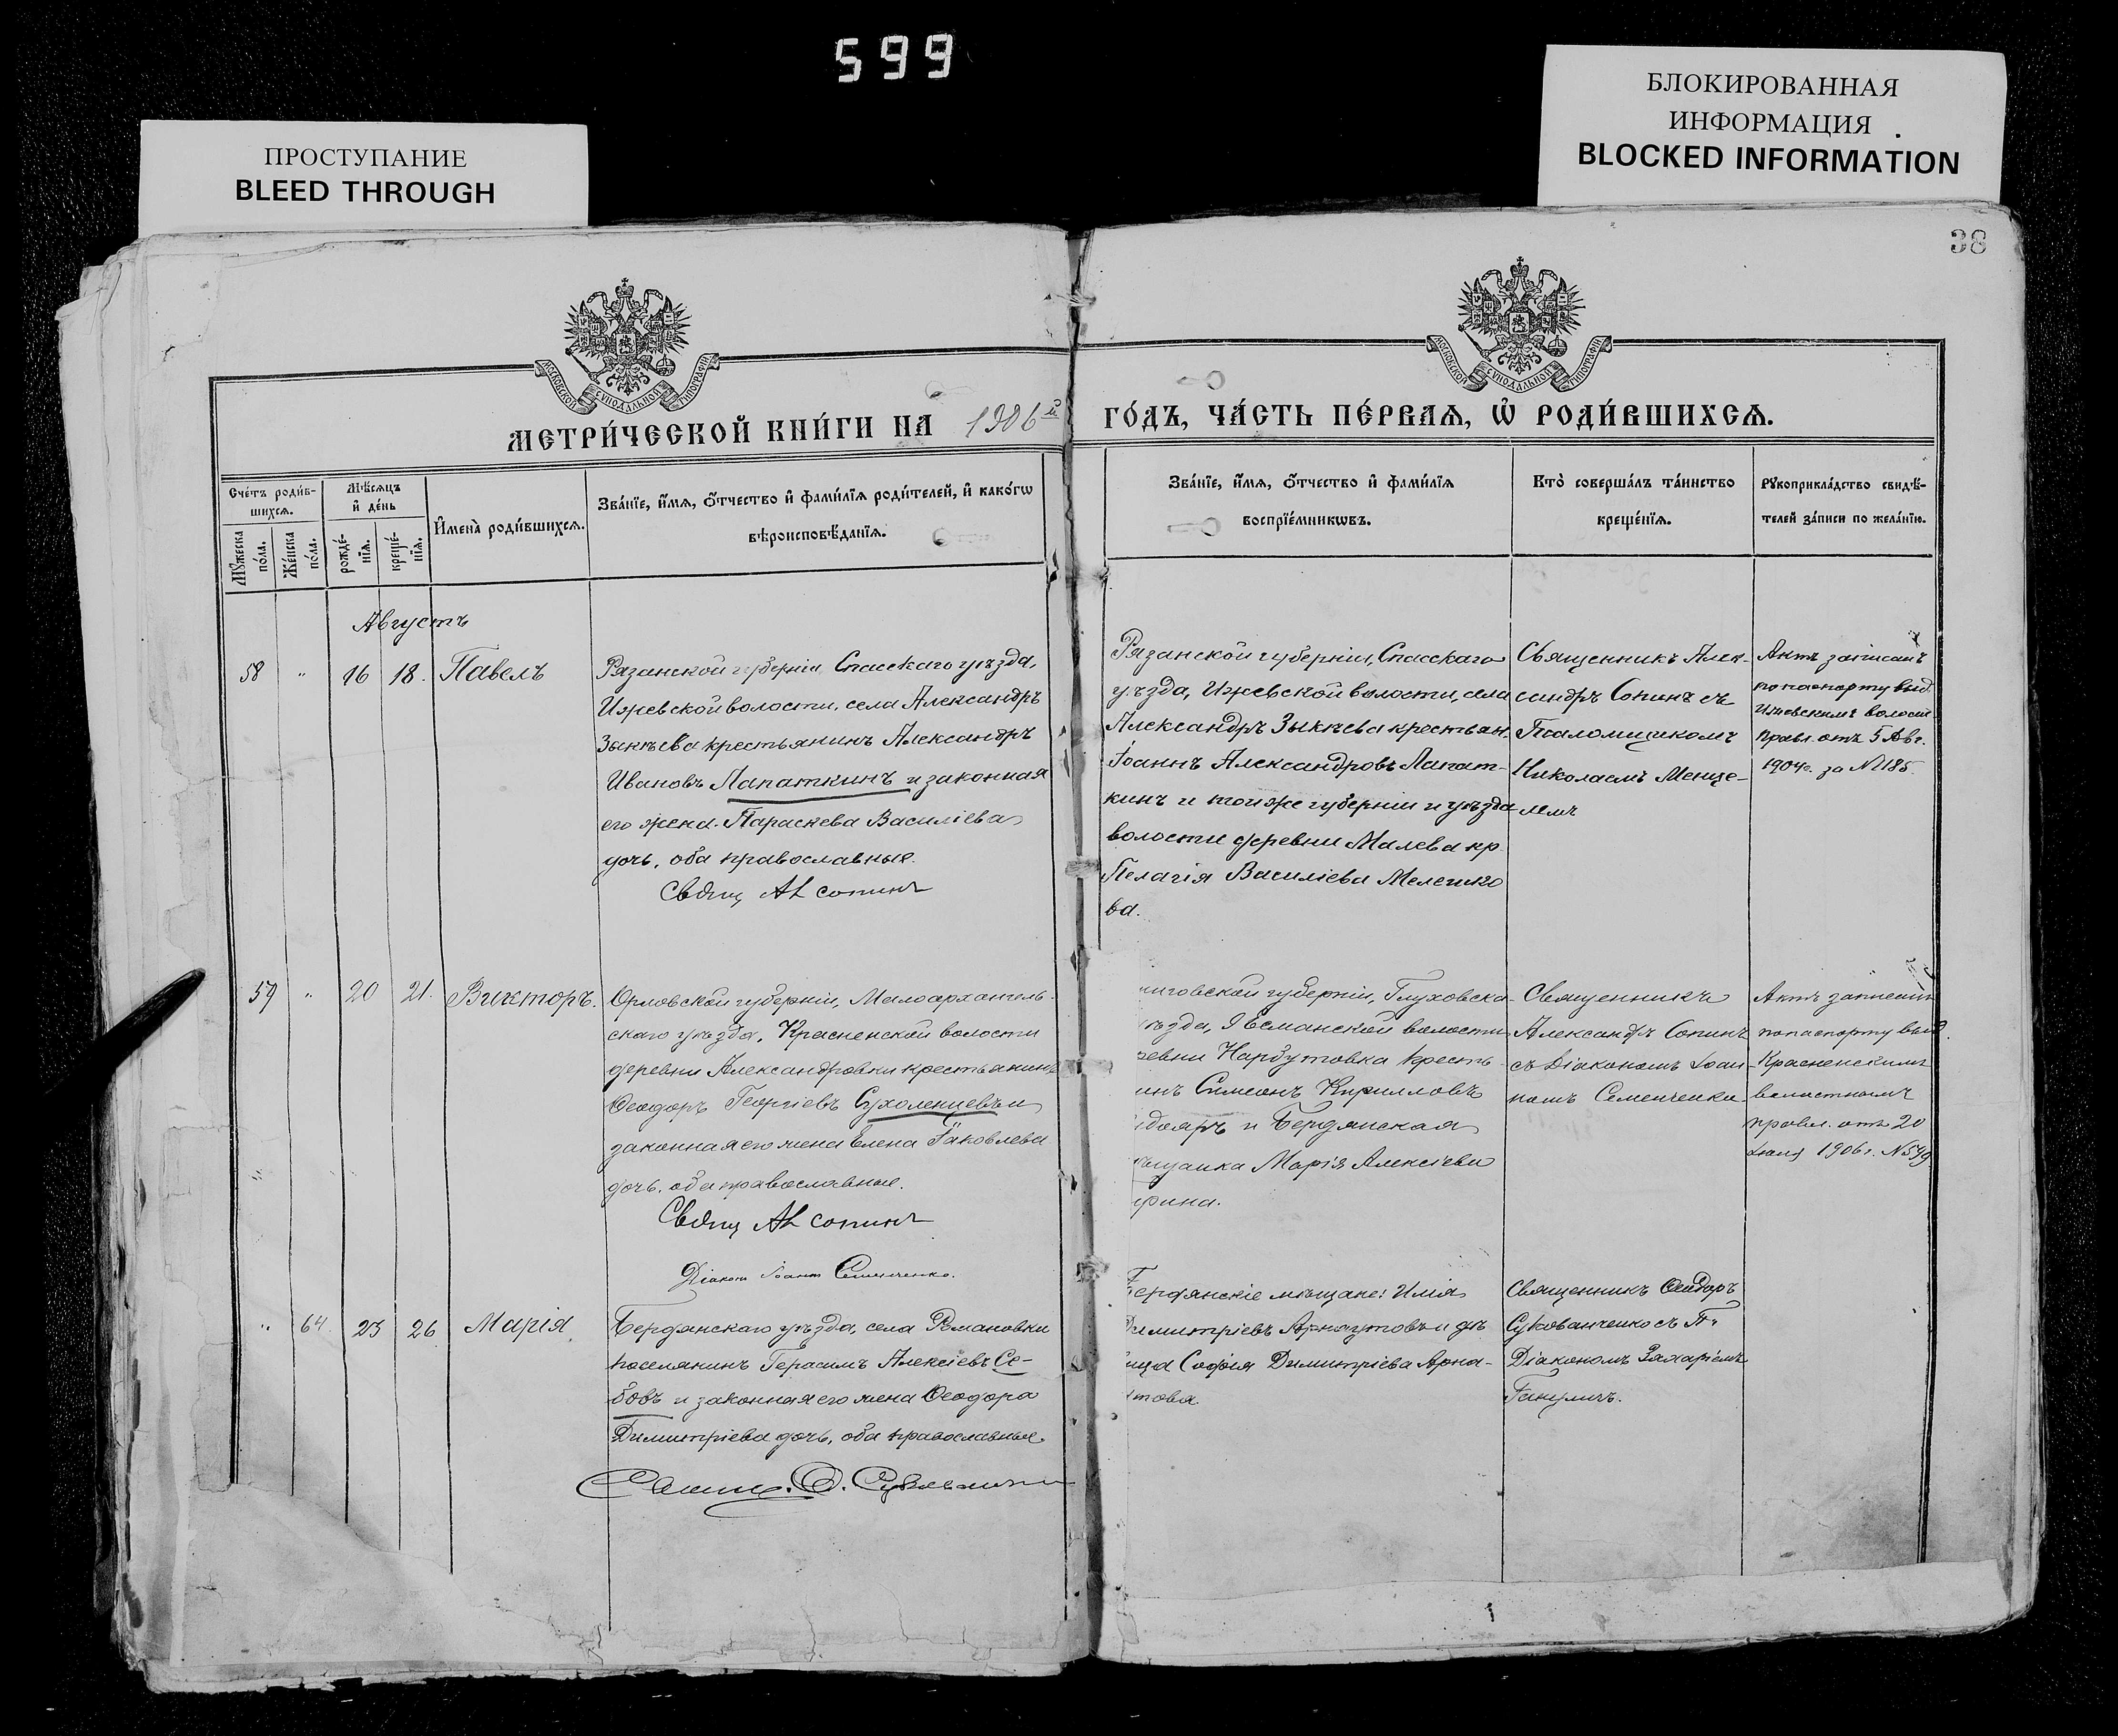 599
ПРОСТУПАНИЕ
BLEED THROUGH
БЛОКИРОВАННАЯ
ИНФОРМАЦИЯ
BLOCKED INFORMATION
38
МОСКОВСКОЙ СѴНОДАЛЬНОЙ ТИПОГРАФІИ
МОСКОВСКОЙ СѴНОДАЛЬНОЙ ТИПОГРАФІИ
МЕТРИ́ЧЕСКОЙ КНИ́ГИ НА 1906й ГО́ДЪ, ЧА́СТЬ ПЕ́РВАѦ, Ѡ РОДИ́ВШИХСѦ.
Сче́тъ роди́в-
шихсѧ.
Мꙋжеска
по́ла.
Же́нска
по́ла.
Мѣ́сѧцъ
и҆ де́нь
рожде́-
нїѧ.
креще́-
нїѧ.
И҆мена̀ роди́вшихсѧ.
Зва́нїе, и҆́мѧ, ѻ҆́тчество и҆ фами́лїѧ роди́телей, и҆ како́гѡ
вѣроисповѣ́данїѧ.
Зва́нїе, и҆́мѧ, ѻ҆́тчество и҆ фами́лїѧ
воспрїе́мникѡвъ.
Кто̀ соверша́лъ та́инство
креще́нїѧ.
Рꙋкоприкла́дство свидѣ́-
телей за́писи по жела́нїю.
Августъ
58 " 16 18. Павелъ
Рязанской губерніи, Спасскаго уѣзда,
Ижевской волости, села Александръ
Зыкѣева крестьянинъ Александръ
Ивановъ Лапаткинъ и законная
его жена Параскева Василіева
дочь, оба православные.
Свящ Ал Сопинъ
Рязанской губерніи, Спасскаго
уѣзда, Ижевской волости, села
Александръ Зыкѣева крестьян.
Іоаннъ Александровъ Лапат-
кинъ и той же губерніи и уѣзда
волости деревни Малева кр.
Пелагія Василіева Мелешко
ва.
Священникъ Алек-
сандръ Сопинъ съ
Псаломщикомъ
Николаемъ Менце-
лемъ
Актъ записанъ
по паспорту выд.
Ижевскимъ волост.
Правл. отъ 5 Авг.
1904г. за №1185.
59 " 20 21. Викторъ.
Орловской губерніи, Малоархангель-
скаго уѣзда, Красненской волости
деревни Александровки крестьянинъ
Ѳеодоръ Георгіевъ Сухоленцевъ и
законная его жена Елена Іаковлева
дочь, оба православные.
Свящ Ал Сопинъ
Діаконъ Іоаннъ Семенченко.
ниговской губерніи, Глуховска-
уѣзда, Эсманской волости
ревни Нарбутовка кресть-
инъ Симеонъ Кирилловъ
и Бердянская
щанка Марія Алексіева
рина.
Священникъ
Александръ Сопинъ
съ Діакономъ Іоан-
номъ Семенченко.
Актъ записанъ
по паспорту выд.
Красненскимъ
волостнымъ
правл. отъ 20
Іюля 1906г. №599
" 64 23 26 Марія
Бердянскаго уѣзда, села Романовки
поселянинъ Герасимъ Алексіевъ Се-
бовъ и законная его жена Ѳеодора
Димитріева дочь, оба православные.
Бердянскіе мѣщане: Илія
Димитріевъ Арнаутовъ и дѣ
вица Софія Димитріева Арна-
утова
Священникъ Ѳеодоръ
Сукованченко съ
Діакономъ Захаріемъ